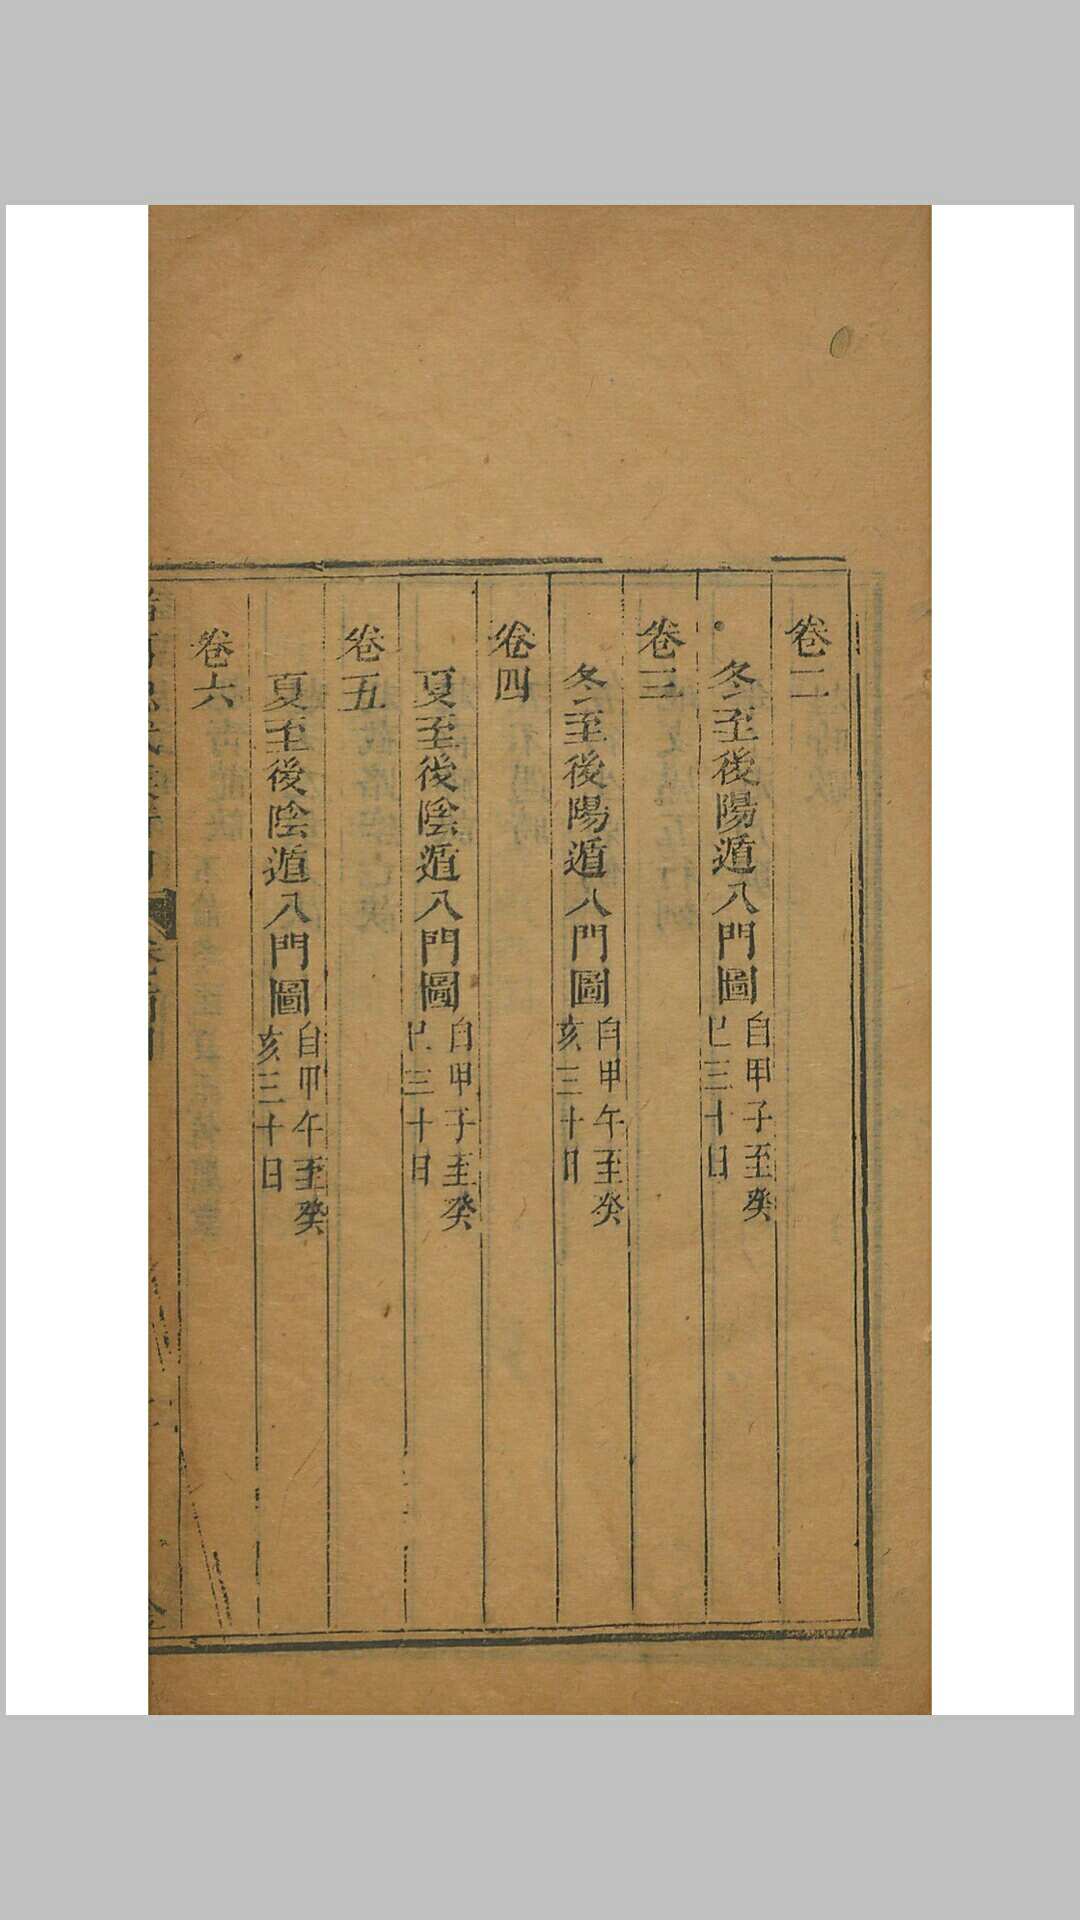 卷二
冬至後陽遁八門圖
自甲子至癸
巳三十日
卷三
冬至後陽遁八門圖
自甲午至癸
亥三十日
卷四
夏至後陰遁八門圖
自甲子至癸
巳三十日
卷五
夏至後陰遁八門圖
自甲午至癸
亥三十日
卷六